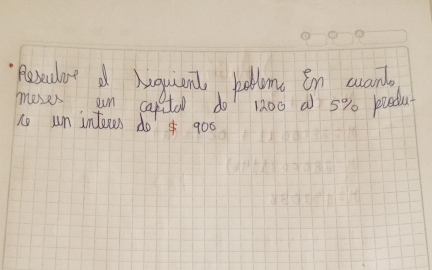 Resuelve el siguiente poblema En cuanto
meses un capital de 1200 al 5% produ-
ce un interes de $ 900